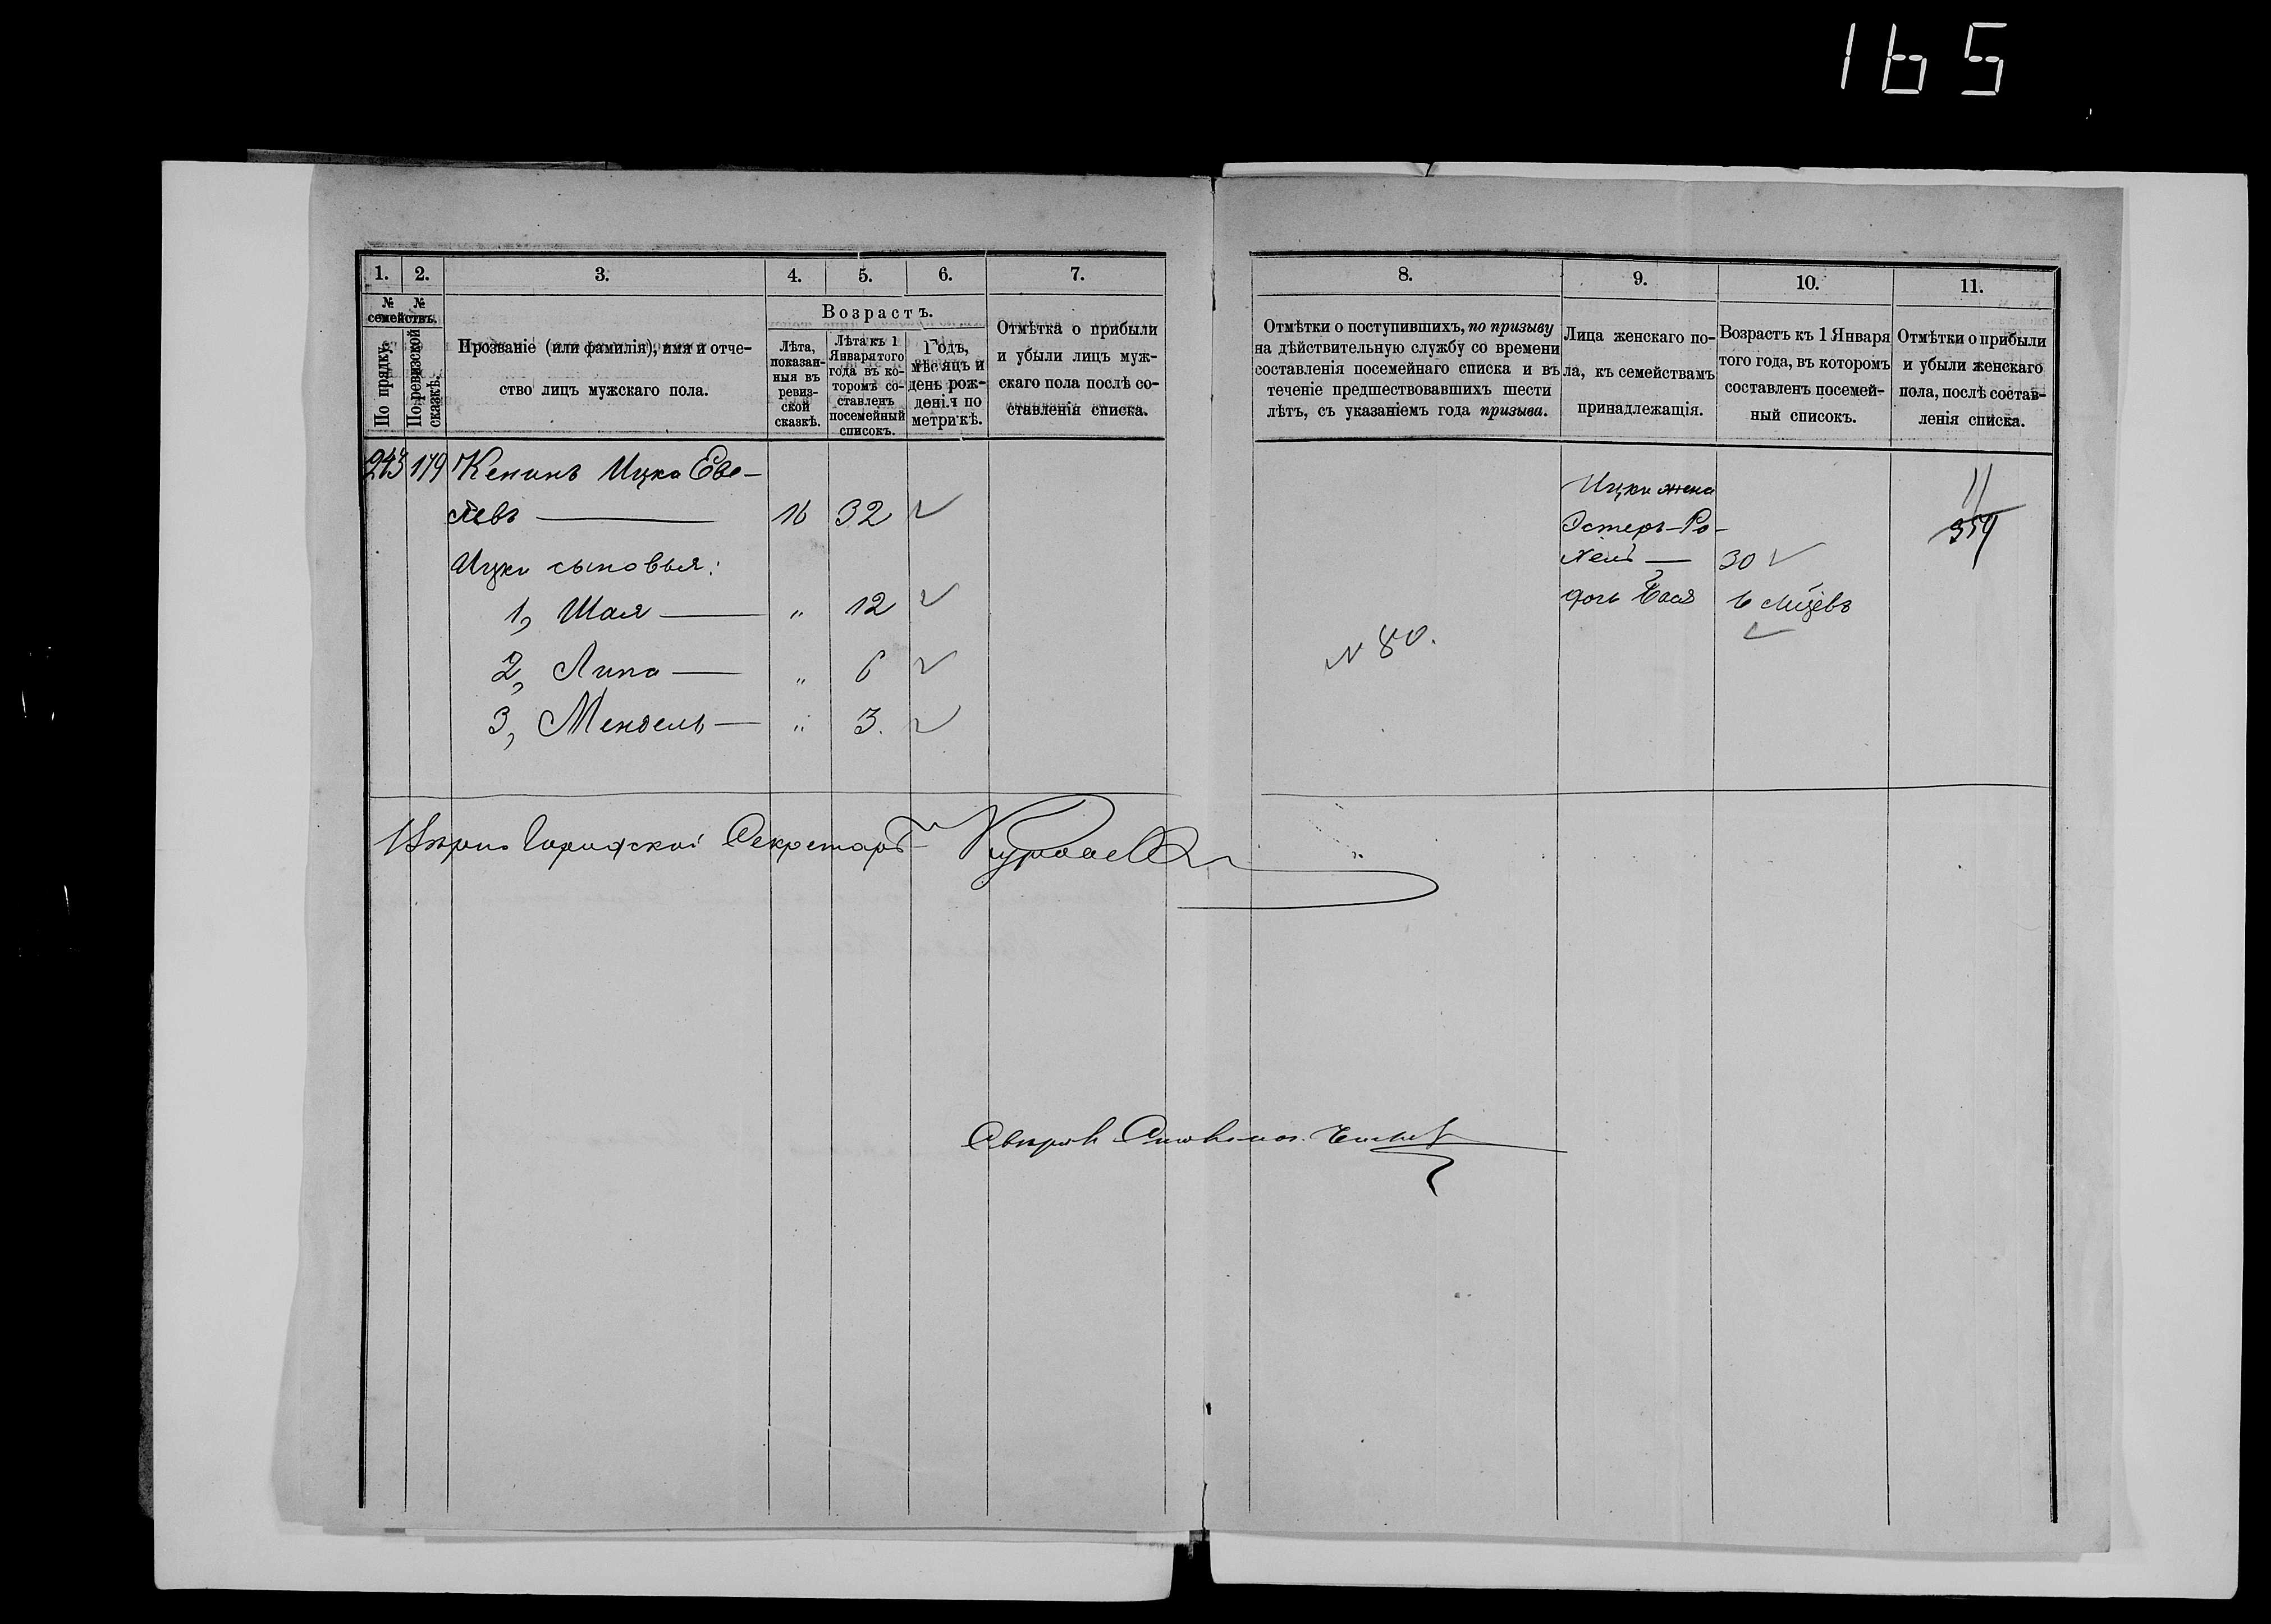 165
1. 2. 3. 4. 5. 6. 7.
№ № семействъ.
По прядку.
По ревизской сказкѣ.
Прозваніе (или фамилія), имя и отче-
ство лицъ мужскаго пола.
Возрастъ.
Лѣта,
показан-
ныя въ
ревиз-
ской
сказкѣ.
Лѣта къ 1
Января того
года въ ко-
торомъ со-
ставленъ
посемейный
списокъ.
Годъ,
мѣсяцъ и
день рож-
денія по
метрикѣ.
Отмѣтка о прибыли
и убыли лицъ муж-
скаго пола послѣ со-
ставленія списка.
243 179 Кенинъ Ицка Ево-
левъ — 16 32
Ицки сыновья:
1, Шая — " 12
2, Липа — " 6
3, Мендель — " 3.
Вѣрно Городской Секретарь
8. 9. 10. 11.
Отмѣтки о поступившихъ, по призыву
на дѣйствительную службу со времени
составленія посемейнаго списка и въ
теченіе предшествовавшихъ шести
лѣтъ, съ указаніемъ года призыва.
Лица женскаго по-
ла, къ семействамъ
принадлежащія.
Возрастъ къ 1 Января
того года, въ которомъ
составленъ посемей-
ный списокъ.
Отмѣтки о прибыли
и убыли женскаго
пола, послѣ состав-
ленія списка.
Ицки жена
Эстеръ-Ро-
хель — 30
дочь Бася 6 мѣцевъ
11
359
N 80.